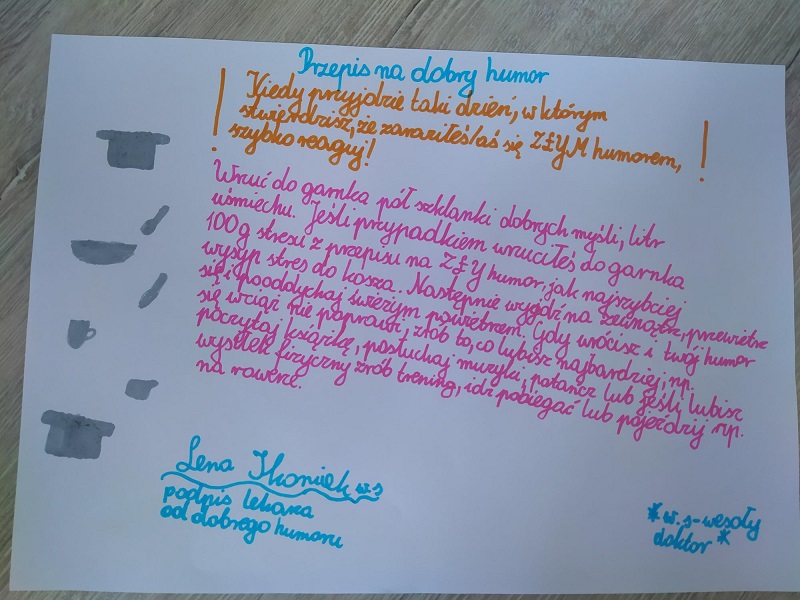 Przepis na dobry humor
Kiedy przyjdzie taki dzień, w którym
stwierdzisz, że zaraziłeś/aś się ZŁYM humorem,
szybko reaguj!
Wrzuć do garnka pół szklanki dobrych myśli, litr
uśmiechu. Jeśli przypadkiem wrzuciłeś do garnka
100g stresu z przepisu na ZŁY humor, jak najszybciej
wysyp stres do kosza. Następnie wyjdź na zewnątrz, przewietrz
się i pooddychaj świeżym powietrzem. Gdy wrócisz i twój humor
się wciąż nie poprawi, zrób to, co lubisz najbardziej, np.
poczytaj książkę, posłuchaj muzyki, potańcz lub jeśli lubisz
wysiłek fizyczny zrób trening, idź pobiegać lub pojeździj np.
na rowerze.
Lena w.s
podpis lekarza
od dobrego humoru
*w.s-wesoły
doktor*